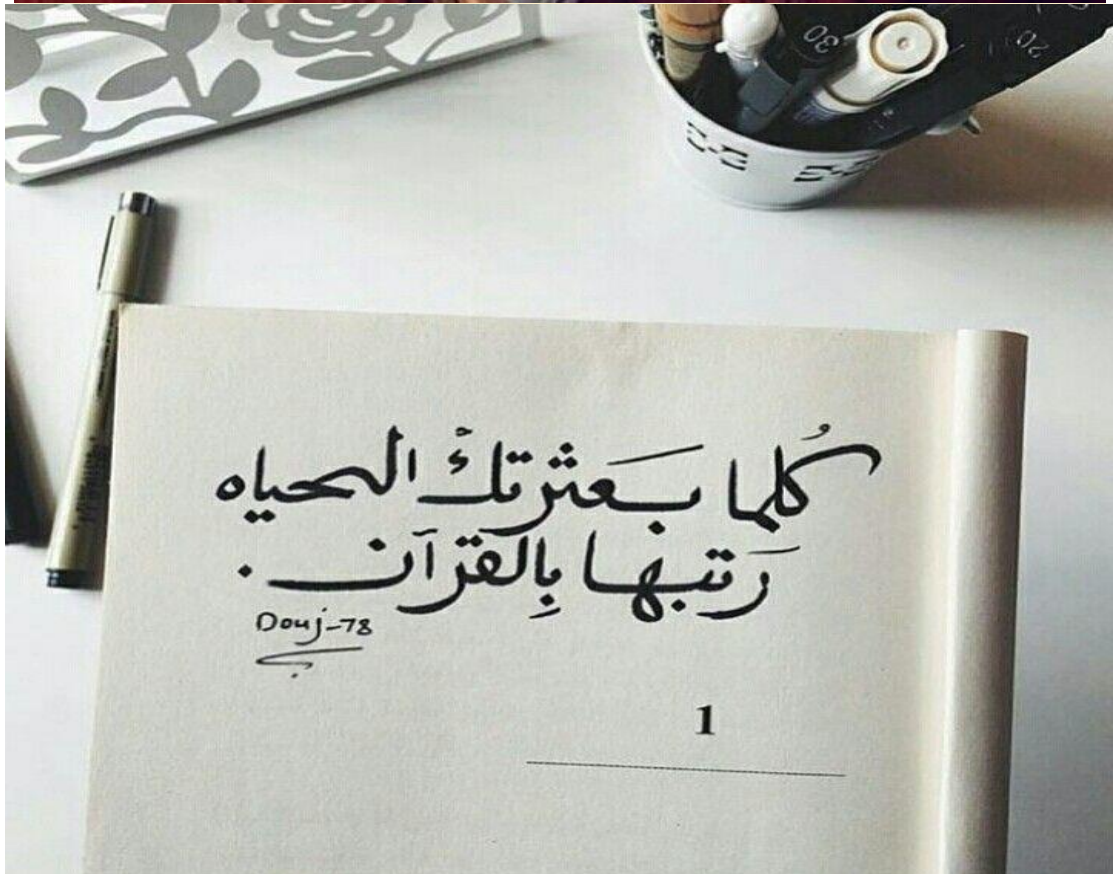 30
20
كُلما بَعثرتكْ الحياه
رَتبها بِالقرآن .
Douj-78
1